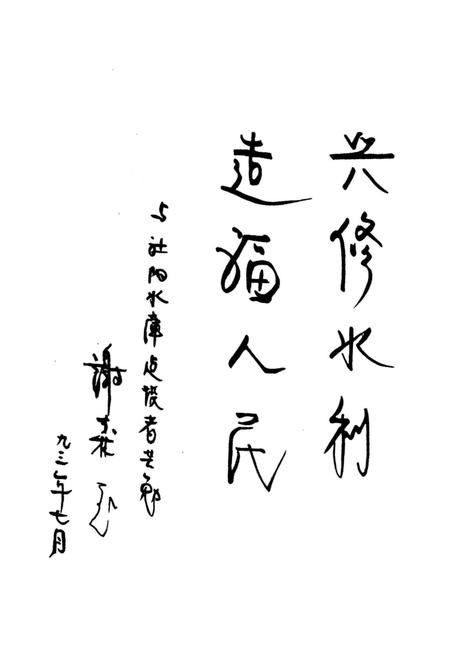 兴修水利
造福人民
与社阳水库建设者共勉
谢
九三年七月